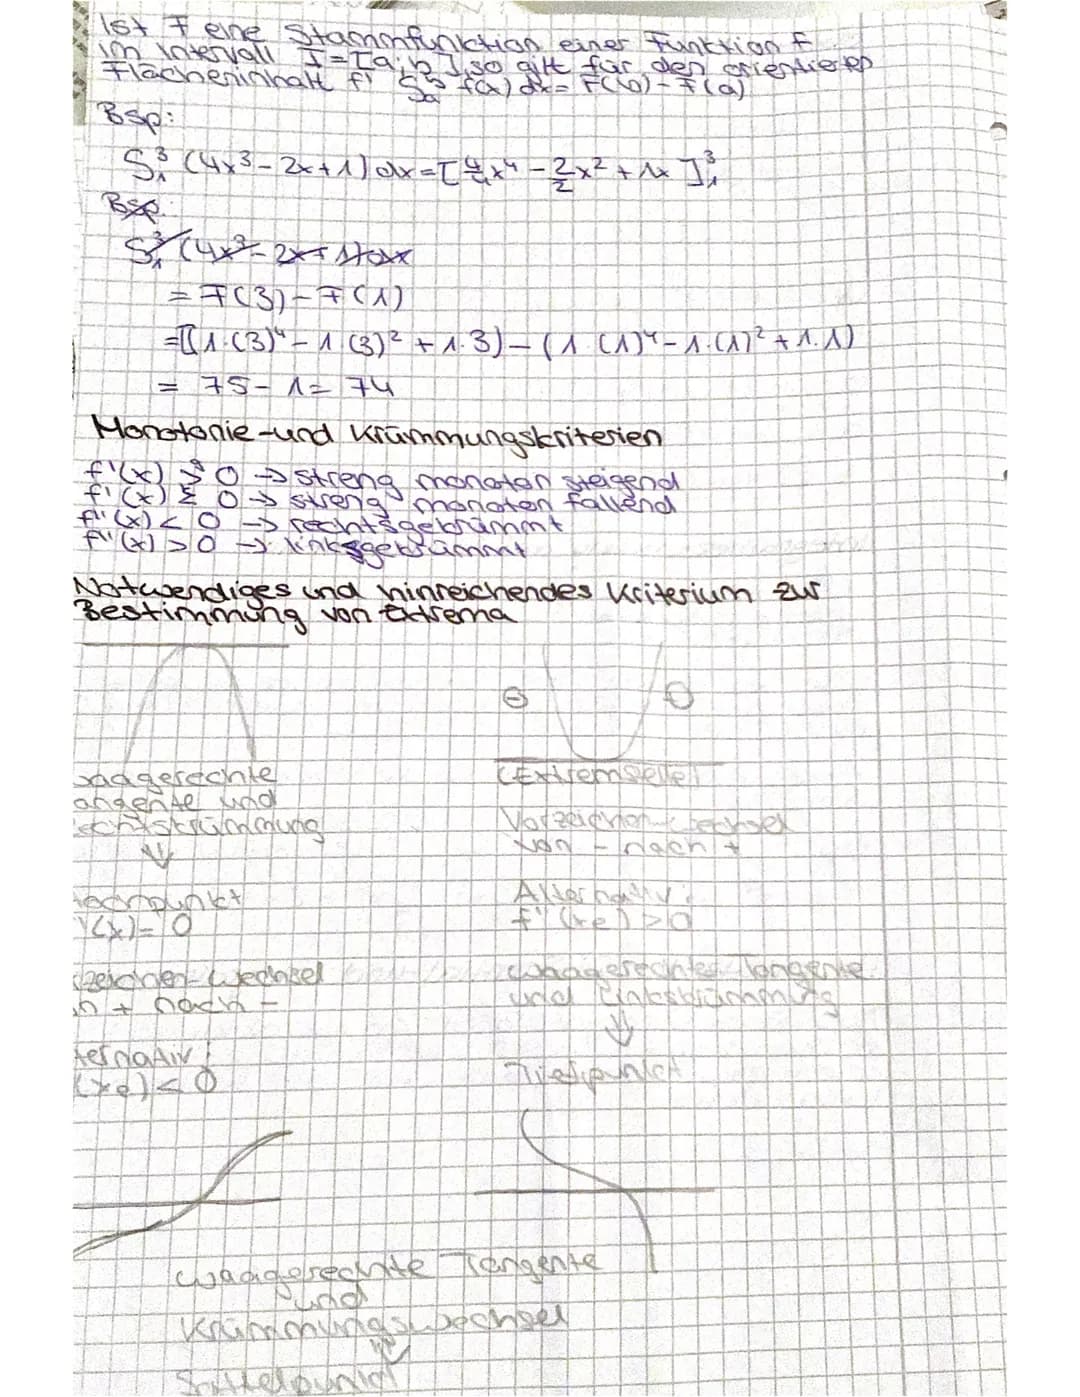 Ist F eine Stammfunktion einer Funktion f
im Intervall I=[a;b], so gilt für den orientierten
Flächeninhalt f' S_a^b f(x) dx = F(b) - F(a)
Bsp:
S_1^3 (4x³ - 2x + 1) dx = [4/4 x⁴ - 2/2 x² + 1x]_1^3
Bsp:
S_1^3 (4x³ - 2x + 1) dx
= F(3) - F(1)
=[(1·(3)⁴ - 1·(3)² + 1·3) - (1·(1)⁴ - 1·(1)² + 1·1)
= 75 - 1 = 74
Monotonie- und Krümmungskriterien
f'(x) > 0 → streng monoton steigend
f'(x) 0 → streng monoton fallend
f''(x) < 0 → rechtsgekrümmt
f''(x) > 0 → linksgekrümmt
Notwendiges und hinreichendes Kriterium zur
Bestimmung von Extrema
aagerechte
angente und
echtskrümmung
⇓
ochpunkt
'(x) = 0
zeichen-Wechsel
n + nach -
ternativ:
(xe) < 0
⊖
(Extremstelle)
Vorzeichen-Wechsel
von - nach +
Alternativ:
f''(xe) > 0
waagerechte Tangente
und Linkskrümmung
⇓
Tiefpunkt
waagerechte Tangente
und
Krümmungswechsel
⇓
Sattelpunkt